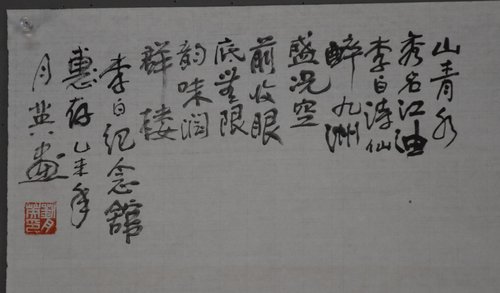 山青水
秀名江油
李白诗仙
醉九洲
盛况空
前收眼
底無限
韵味润
群楼
李白纪念舘
惠存 乙未年
月英画